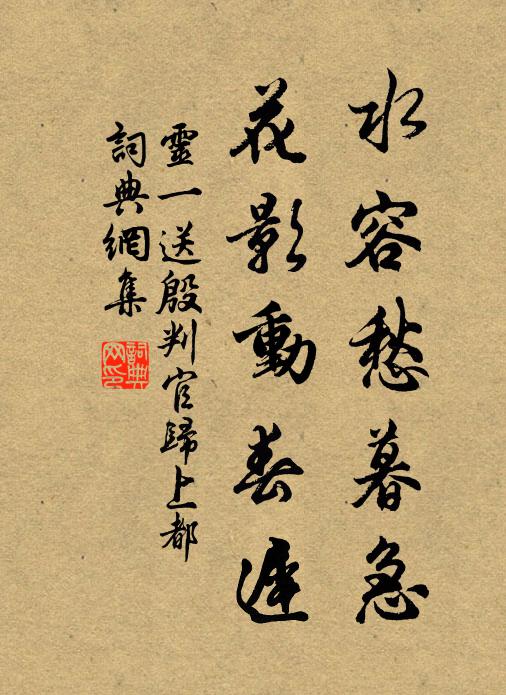 水容愁暮急
花影動春遲
靈一送殷判官歸上都
詞典網集
詞典網印